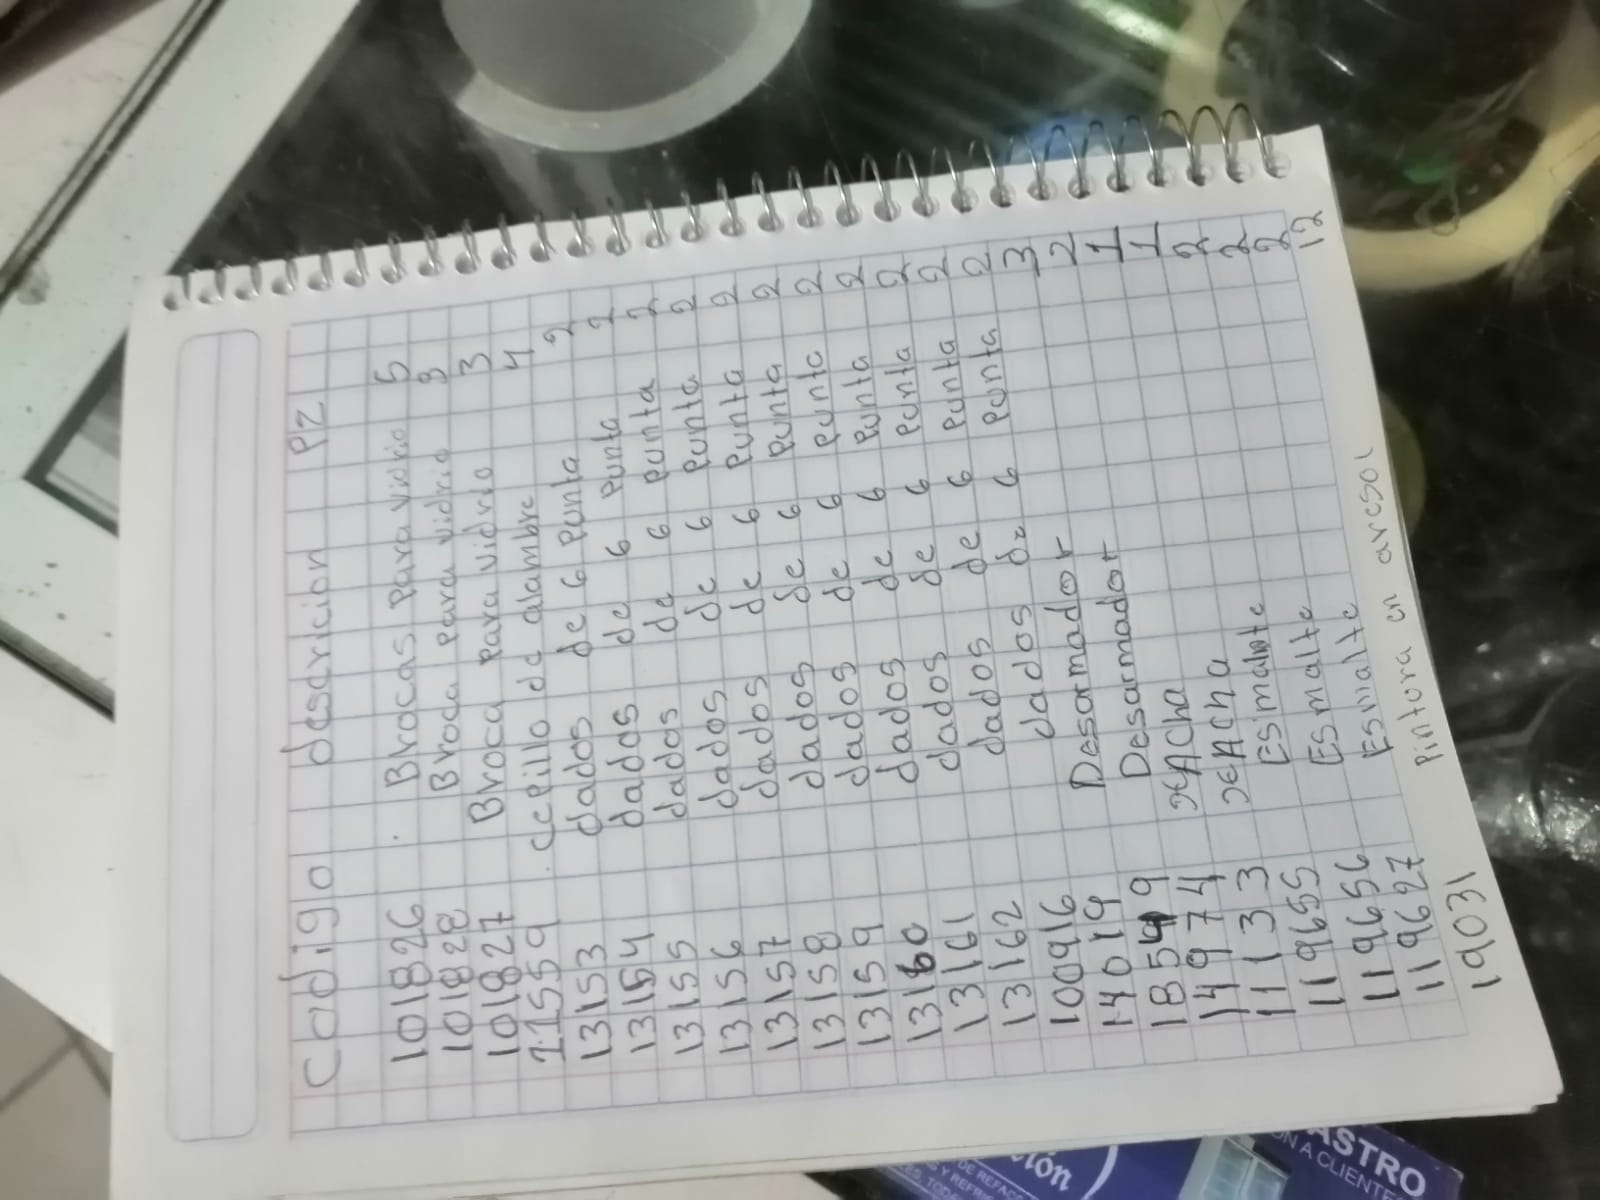 Codigo descricion PZ
101826 Brocas para vidrio 5
101828 Broca para vidrio 3
101827 Broca para vidrio 3
11559 cepillo de alambre 4
13153 dados de 6 punta 2
13154 dados de 6 punta 2
13155 dados de 6 punta 2
13156 dados de 6 punta 2
13157 dados de 6 punta 2
13158 dados de 6 punta 2
13159 dados de 6 punta 2
13160 dados de 6 punta 2
13161 dados de 6 punta 2
13162 dados de 6 punta 2
100916 dados de 6 punta 2
14019 Desarmador 3
18549 Desarmador 2
14974 xAcha 1
11133 xAcha 1
119655 Esmalte 2
119656 Esmalte 2
119627 Esmalte 2
19031 Pintora en aresol 12